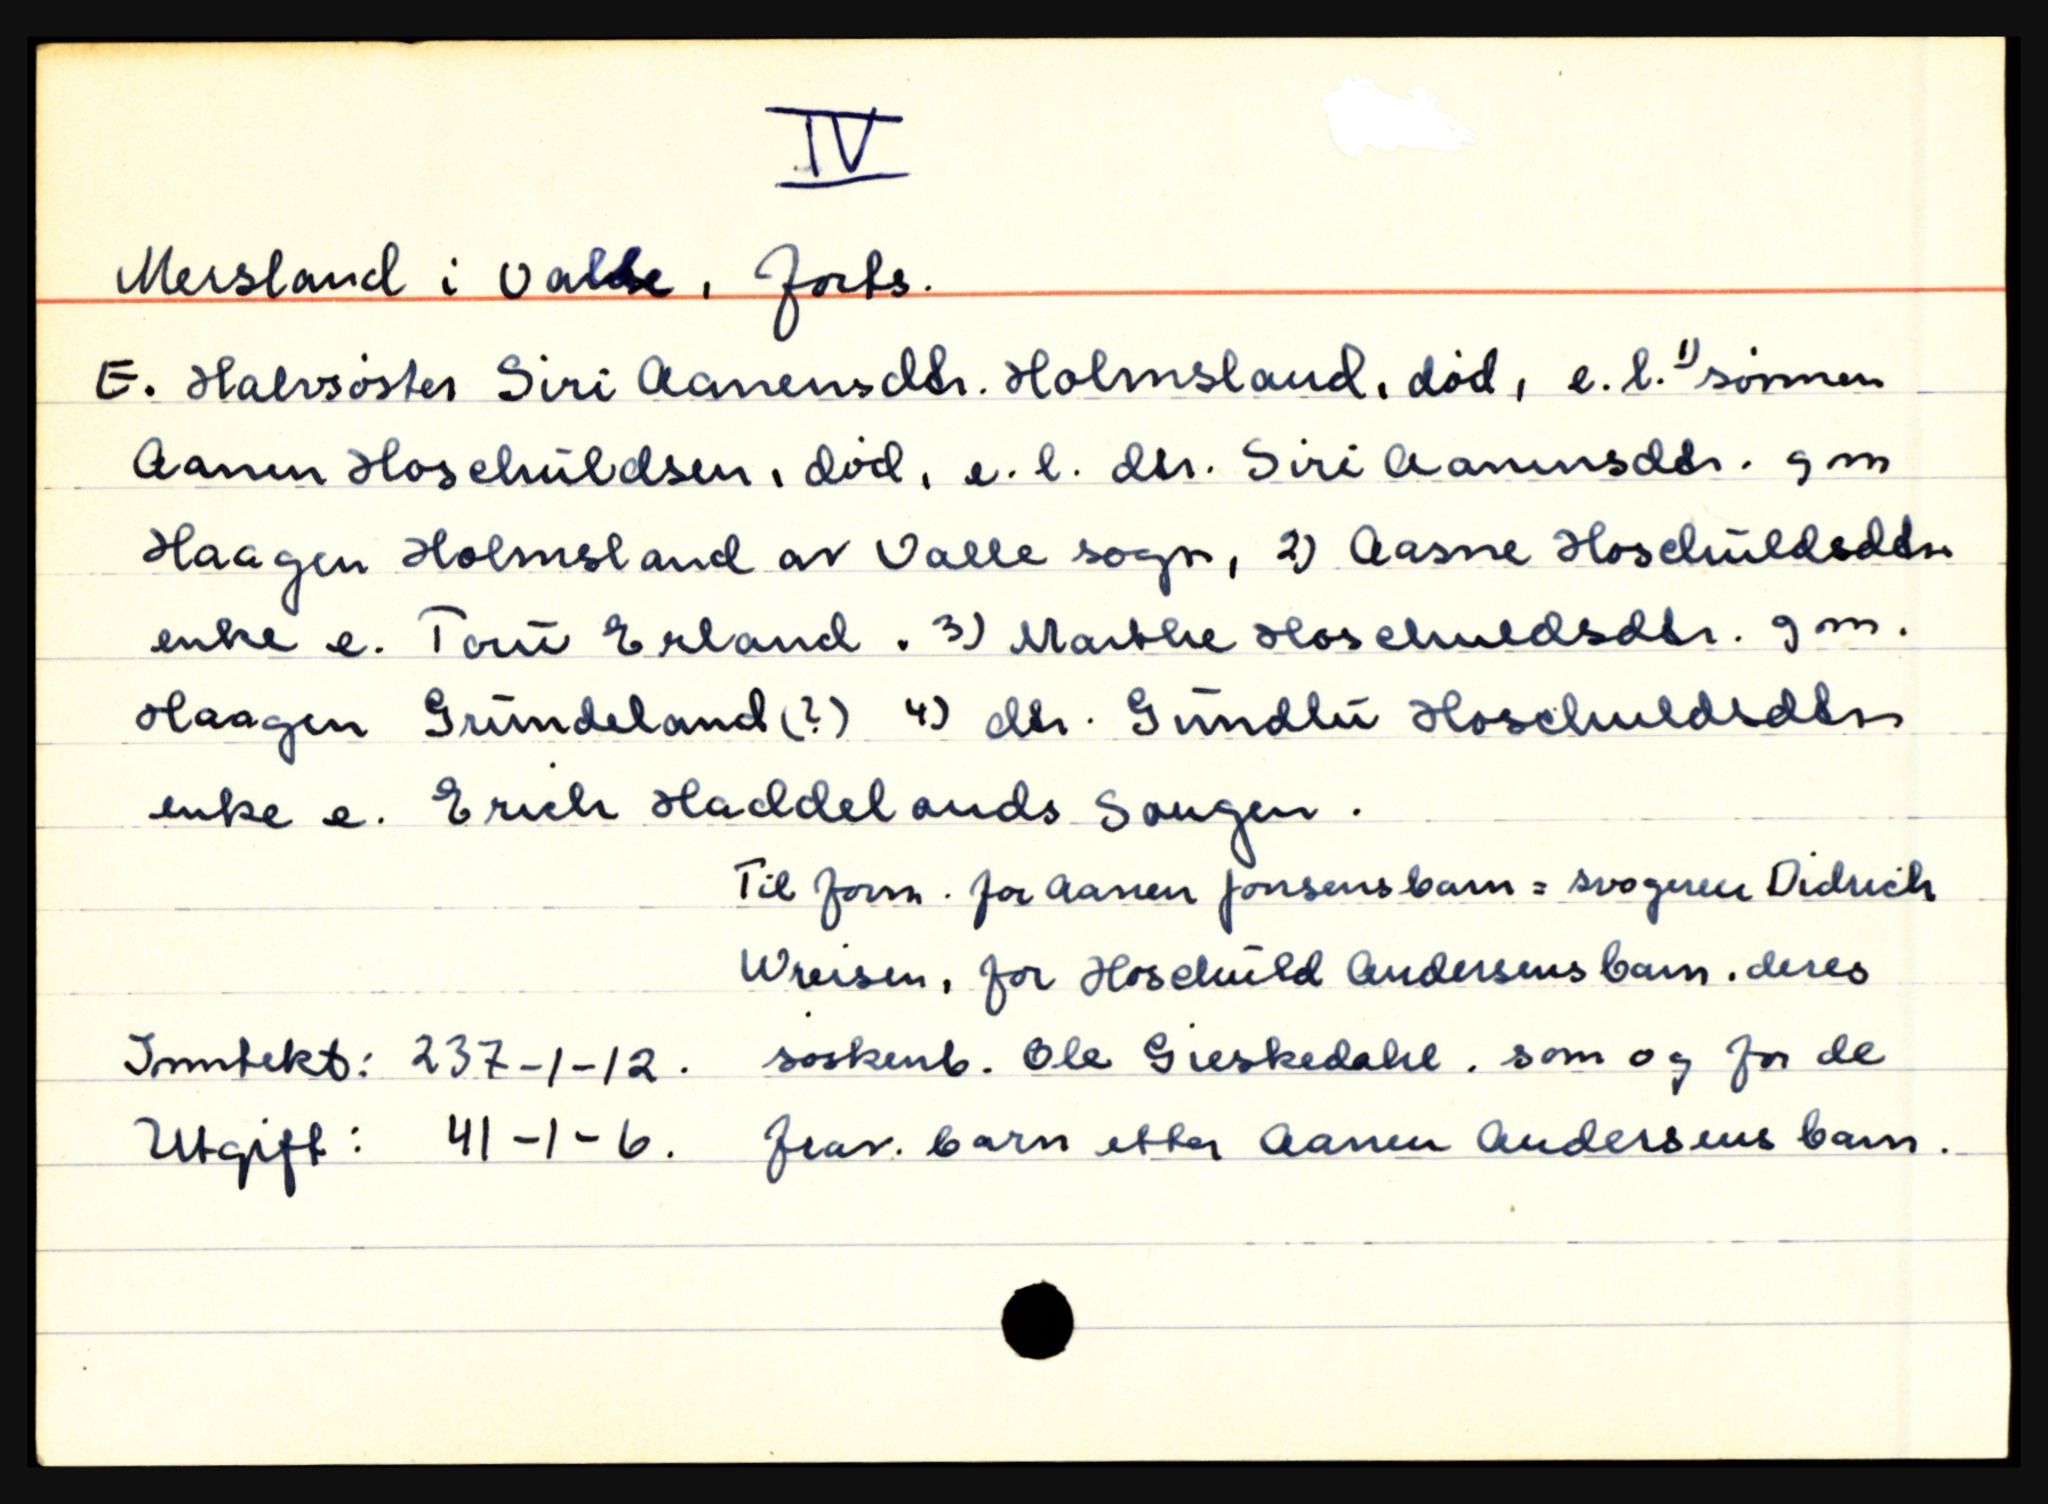 IV
Mersland i Valle, forts.
E. Halvsöster Siri Aanensdtr. Holmsland, död, e. l. 1) sönnen
Aanen Hoschŭldsen, död, e. l. dtr. Siri Aanensdtr. gm
Haagen Holmsland av Valle sogn, 2) Aasne Hoschŭldsdtr.
enke e. Torŭ Erland. 3) Marthe Hoschuldsdtr. gm.
Haagen Grŭndeland (?) 4) dtr. Gŭndlŭ Hoschuldsdtr.
enke e. Erich Haddelands Sougen.
Til form. for Aanen Jonsens barn = svogeren Didrich
Wreisen, for Hoschŭld Andersens barn. deres
Inntekt: 237-1-12. söskenb. Ole Gieskedahl. som og for de
Utgift: 41-1-6. frav. barn etter Aanen Andersens barn.